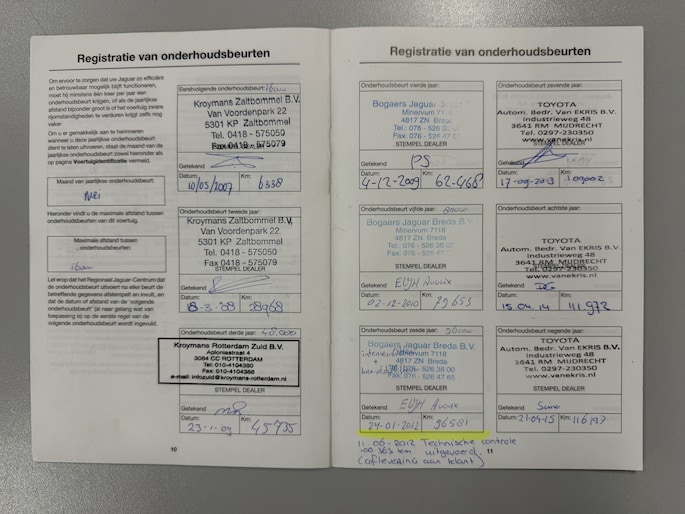 Registratie van onderhoudsbeurten
Om ervoor te zorgen dat uw Jaguar zo efficiënt
en betrouwbaar mogelijk blijft functioneren,
moet hij minstens één keer per jaar een
onderhoudsbeurt krijgen, of als de jaarlijkse
afstand bijzonder groot is of het voertuig zware
rijomstandigheden te verduren krijgt zelfs nog
vaker.
Om u er gemakkelijk aan te herinneren
wanneer u deze jaarlijkse onderhoudsbeurt
dient te laten uitvoeren, staat de maand van de
jaarlijkse onderhoudsbeurt zowel hieronder als
op pagina Voertuigidentificatie vermeld.
Maand van jaarlijkse onderhoudsbeurt:
Mei
Hieronder vindt u de maximale afstand tussen
onderhoudsbeurten van dit voertuig.
Maximale afstand tussen
onderhoudsbeurten:
Let erop dat het Regionaal Jaguar-Centrum dat
de onderhoudsbeurt uitvoert na elke beurt de
betreffende gegevens afstempelt en invult, en
dat de datum of afstand van de 'volgende
onderhoudsbeurt' (al naar gelang wat van
toepassing is) op de eerste regel van de
volgende onderhoudsbeurt wordt ingevuld.
Eerstvolgende onderhoudsbeurt:
Kroymans Zaltbommel B.V.
Van Voordenpark 22
5301 KP Zaltbommel
Tel. 0418 - 575050
Fax 0418 - 575079
Getekend
Datum: Km:
10/05/2007 6338
Onderhoudsbeurt tweede jaar:
Kroymans Zaltbommel B.V.
Van Voordenpark 22
5301 KP Zaltbommel
Tel. 0418 - 575050
Fax 0418 - 575079
STEMPEL DEALER
Getekend
Datum: Km:
18-3-08 28968
Onderhoudsbeurt derde jaar: 48.000
Kroymans Rotterdam Zuid B.V.
Aploniastraat 4
3084 CC ROTTERDAM
Tel: 010-4104380
Fax: 010-4104386
e-mail: infozuid@kroymans-rotterdam.nl
STEMPEL DEALER
Getekend
Datum: Km:
45735
10
Registratie van onderhoudsbeurten
Onderhoudsbeurt vierde jaar:
Bogaers Jaguar
Minervum 7118
4817 ZN Breda
STEMPEL DEALER
Getekend PS
Datum: Km:
4-12-2009 62-468
Onderhoudsbeurt vijfde jaar:
Bogaers Jaguar Breda B.V.
Minervum 7118
4817 ZN Breda
Tel.: 076 - 526 38 00
STEMPEL DEALER
Getekend
Datum: Km:
02-12-2010 79653
Onderhoudsbeurt zesde jaar: 90000
Bogaers Jaguar Breda B.V.
Minervum 7118
4817 ZN Breda
Tel.: 076 - 526 38 00
Fax: 076 - 526 47 65
STEMPEL DEALER
Getekend
Datum: Km:
24-01-2012 96581
11-06-2012 Technische controle
100 363 km uitgevoerd.
(aflevering aan klant)
11
Onderhoudsbeurt zevende jaar:
TOYOTA
Autom. Bedr. Van EKRIS B.V.
Industrieweg 48
3641 RM MIJDRECHT
Tel. 0297-230350
www.vanekris.nl
STEMPEL DEALER
Getekend
Datum: Km:
17-09-2013 109002
Onderhoudsbeurt achtste jaar:
TOYOTA
Autom. Bedr. Van EKRIS B.V.
Industrieweg 48
3641 RM MIJDRECHT
Tel. 0297-230350
www.vanekris.nl
Getekend
Datum: Km:
15.04.14 111.972
Onderhoudsbeurt negende jaar:
TOYOTA
Autom. Bedr. Van EKRIS B.V.
Industrieweg 48
3641 RM MIJDRECHT
Tel. 0297-230350
www.vanekris.nl
STEMPEL DEALER
Getekend
Datum: Km:
21-04-15